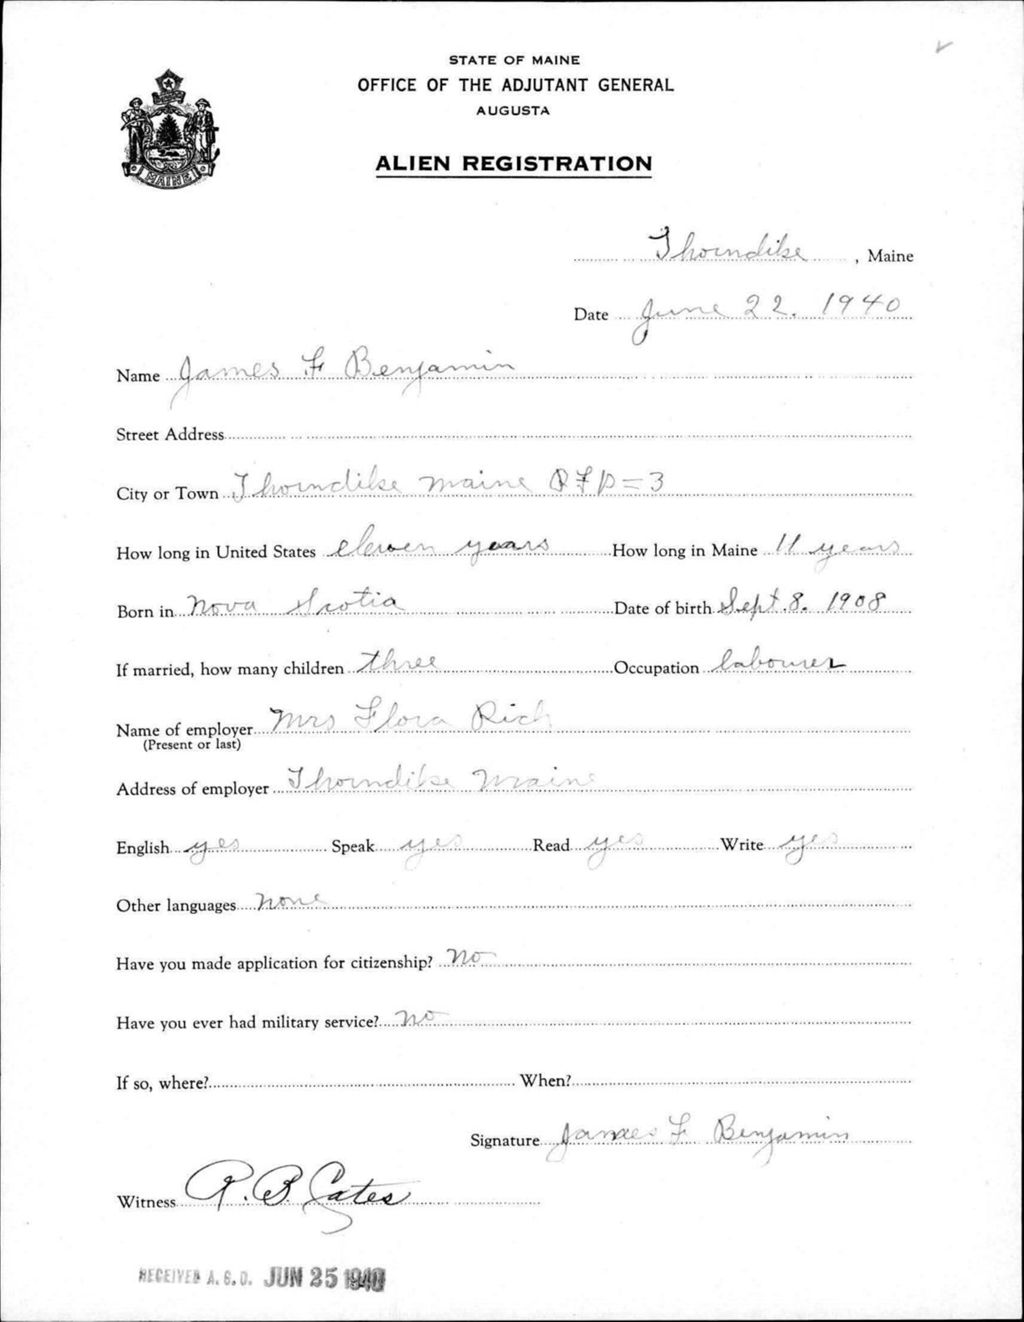 STATE OF MAINE
OFFICE OF THE ADJUTANT GENERAL
AUGUSTA
ALIEN REGISTRATION
MAINE
Thorndike, Maine
Date June 22. 1940
Name James F Benjamin
Street Address
City or Town Thorndike Maine RFD=3
How long in United States eleven years How long in Maine 11 years
Born in Nova Scotia Date of birth Sept. 8. 1908
If married, how many children three Occupation labourer
Name of employer Mrs Flora Rich
(Present or last)
Address of employer Thorndike Maine
English yes Speak yes Read yes Write yes
Other languages none
Have you made application for citizenship? no
Have you ever had military service? no
If so, where? When?
Signature James F Benjamin
Witness R. B. Cates
RECEIVED A. G. O. JUN 25 1940